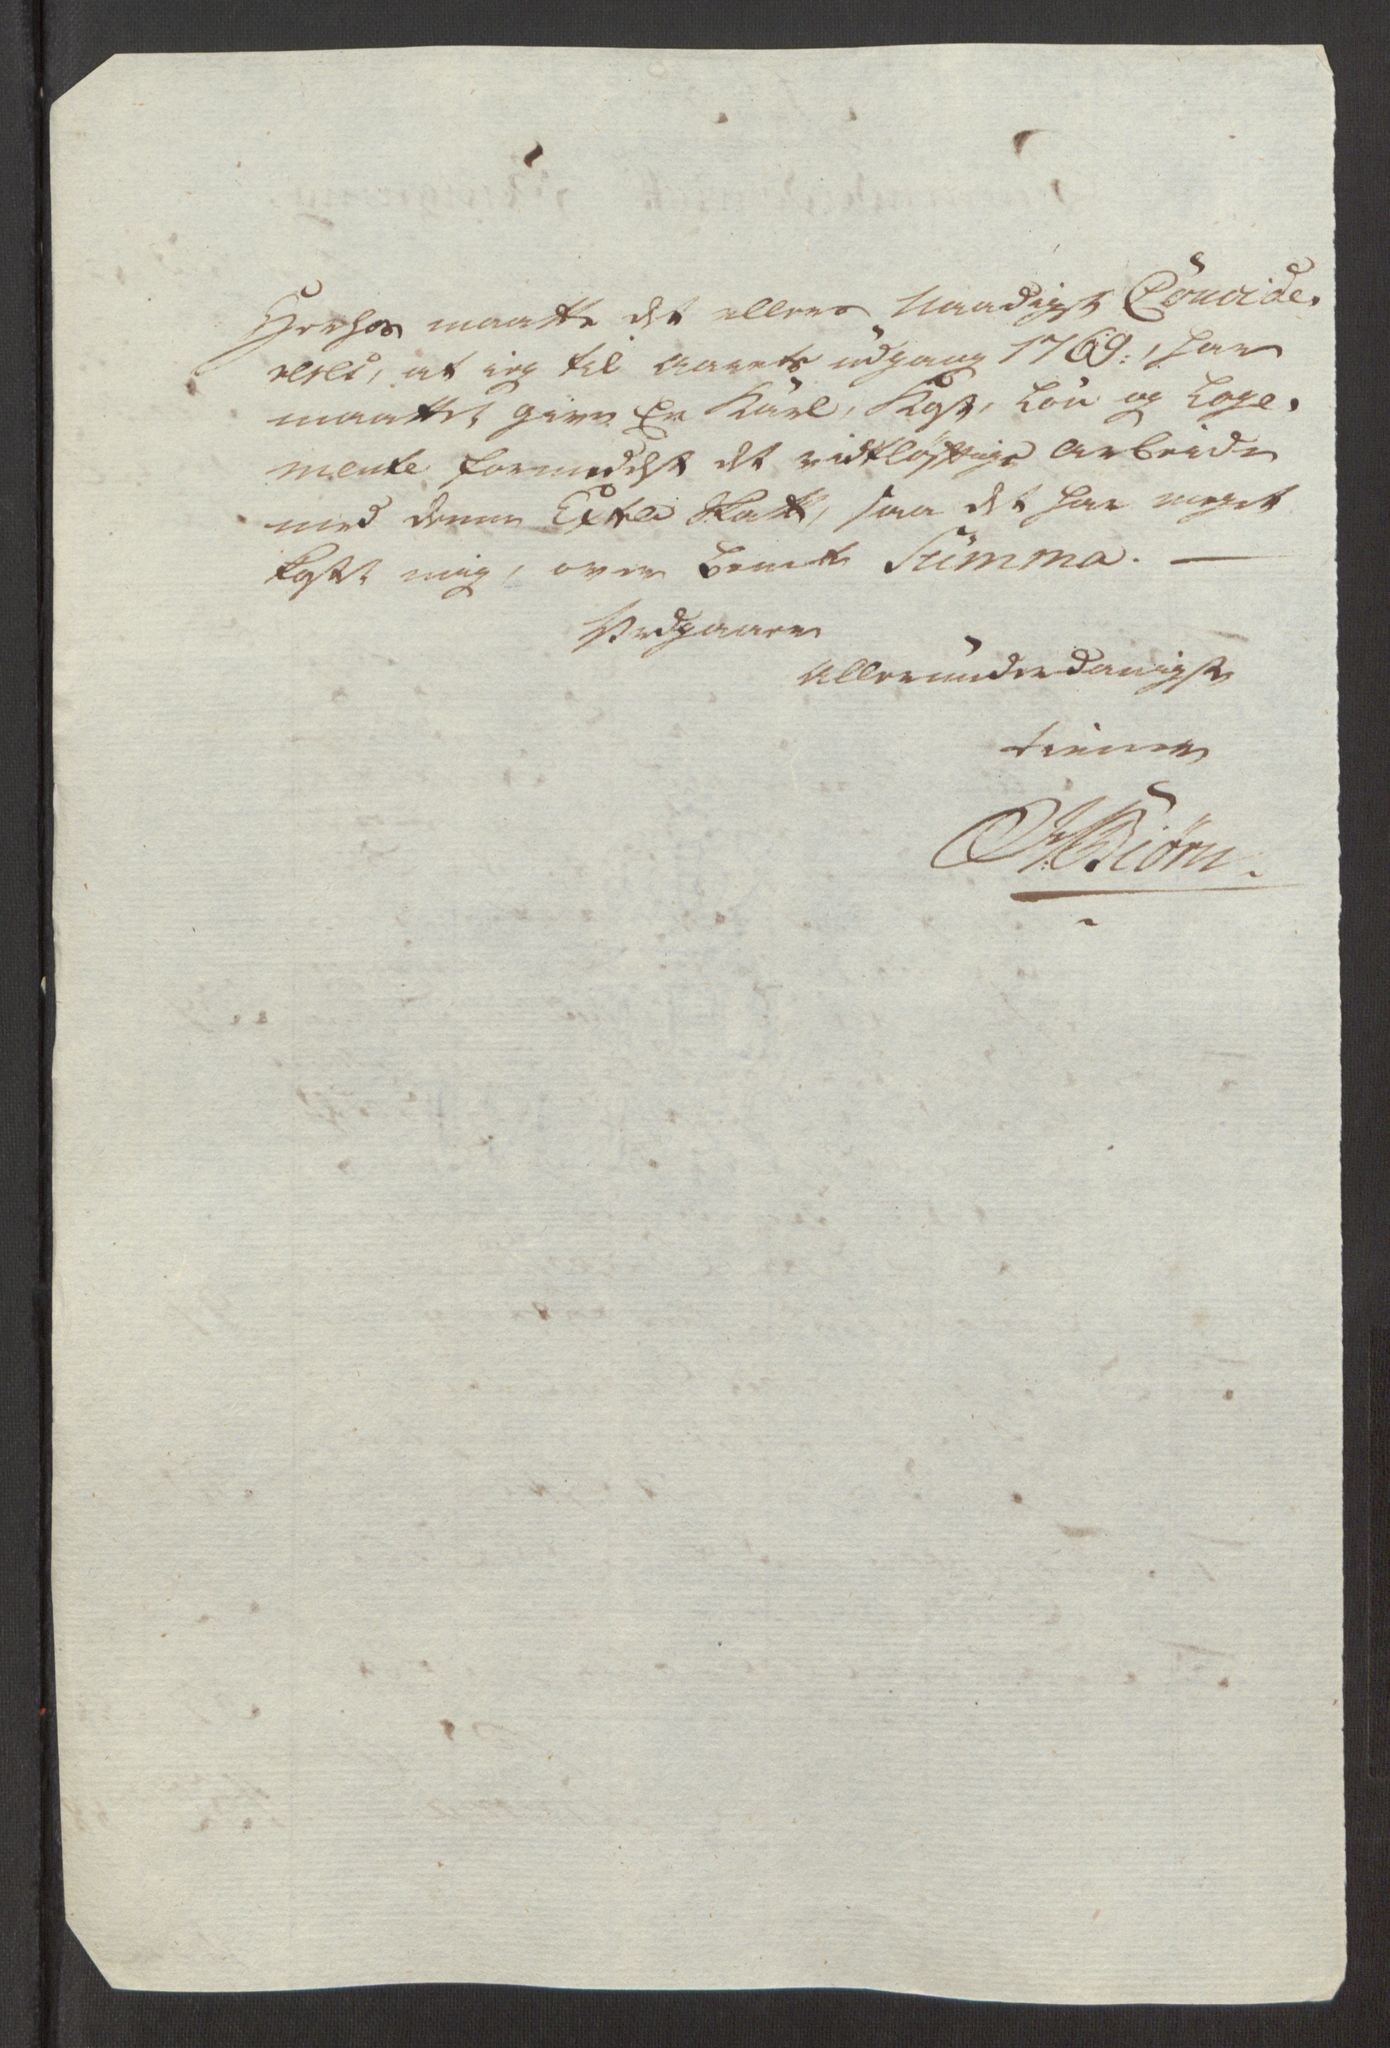 Herhos maatte det ellers Naadigst Conside-
reres, at ieg til aarets udgang 1769:, har
maattet give En Karl, Kost, Løn og Loge-
mente formedelst det vidtløftige Arbeide
med denne Extra Skatt, saa det har meget
kostet mig, over bemte Summa. —
Vedgaaer
Allerunderdanigst
tiener
Biørn.